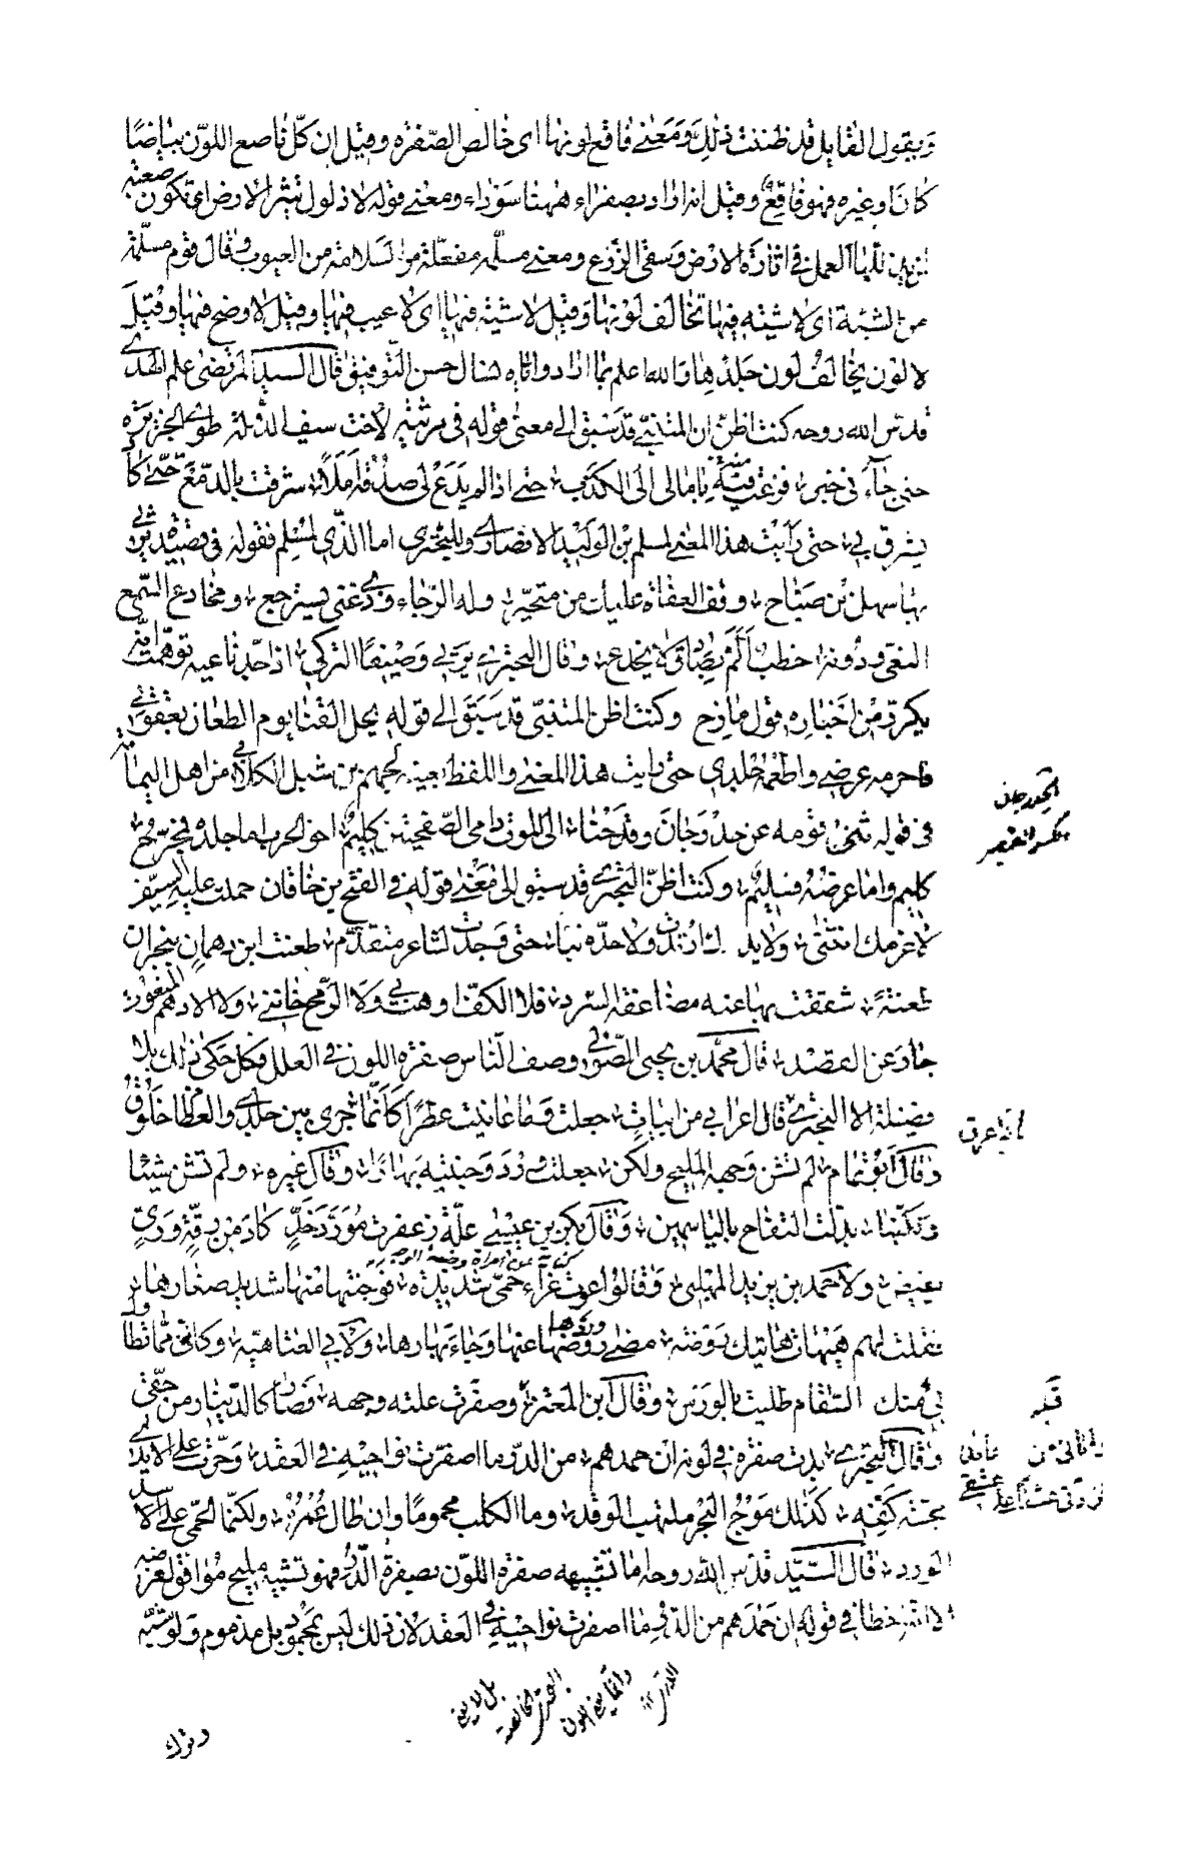 ويقول القايل قد ظننت ذلك ومعنى فاقع لونها اى خالص الصفرة وقيل ان كل ناصع اللون بياضا
كان او غيره فهو فاقع وقيل انه اراد بصفراء ههنا سوداء ومعنى قوله لا ذلول تثير الارض اى تكون صعبة
العمل في اثارة الارض وسقى الزرع ومعنى مسلمة مفعلة من السلامة من العيوب وقال قوم مسلمة
من الشية اى لا شية فيها تخالف لونها وقيل لا شية فيها اى لا عيب فيها وقيل لا وضح فيها وقيل
لا لون يخالف لون جلدها والله اعلم بما اراد واياه نسال حسن التوفيق قال السيد المرتضى علم الهدى
قدس الله روحه كنت اظن ان المتنبى قد سبق الى معنى قوله فى مرثية لاخت سيف الدولة طوى الجزيرة
حتى جاءنى خبر فزعت فيه بآمالى الى الكذب حتى اذا لم يدع لى صدقه املا شرقت بالدمع حتى كاد
يشرق بى حتى رأيت هذا المعنى لمسلم بن الوليد الانصارى وللبحترى اما الذى لمسلم فقوله فى قصيدة يرثى
بها سهل بن صباح وقف العفاة عليك من متحير وله الرجاء وذى غنى يسترجع ومخادع السمع
النعى ودونه خطب الم بصادق لا يخدع وقال البحترى يرثى وصيفا التركى اذا جد ناعيه توهمت انه
يكرر من اخباره قول مازح وكنت اظن المتنبى قد سبق الى قوله يحل القنا يوم الطعان بعقوتى
فاحرمه عرضى واطعمه جلدى حتى رايت هذا المعنى واللفظ بعينه لجهم بن شبل الكلابى من اهل اليمامة
فى قوله
كليم واما عرضه فسليم وكنت اظن البحترى قد سبق الى معنى قوله فى الفتح بن خاقان حملت عليه السيف
لا عزمك انثنى ولا يدك ارتدت ولا حده نبا حتى وجدت لشاعر متقدم طعنت ابن دهمان بنجران
طعنة شققت بها عنه مضاعفة السرد فلا الكف اوهت بى ولا الرمح خاننى ولا الادهم المنعوت
حاد عن القصد قال محمد بن يحيى الصولى وصف الناس صفرة اللون فى العلل فكل حكى ذلك بلا
فضيلة الا البحترى قال اعرابى من ابيات جعلت وما عاينت عطرا كأنما جرى بين جلدى والعظام خلوق
وقال ابو تمام لم تشن وجهه المليح ولكن جعلت ورد وجنتيه بهارا وقال غيره ولم تشن شيئا
ولكنها بدلت التفاح بالياسمين وقال بكر بن عيسى علة زعفرت مورد خد كاد من رقة ورى
يفيض ولاحمد بن يزيد المهلبى وقالوا
فقلت لهم هيهات هاتيك روضة مضى وردها عنها وجاء بهارها ولابى العتاهية وكاننى مما تطاول
بى منك السقام طليت بالورس وقال ابن المعتز وصفرت علته وجهه فصار كالدينار من حقى
وقال البحترى بدت صفرة فى لونه ان حمدهم من الدر ما اصفرت نواحيه فى العقد وحرت على الايدى
مجسة كفه كذلك موج البحر ملتهب الوقد وما الكلب محموما وان طال عمره ولكنما الحمى على الاسد
الورد قال السيد قدس الله روحه اما تشبيهه صفرة اللون بصفرة الدر فهو تشبيه مليح موافق لغرضه
الا انه اخطا فى قوله ان حمدهم من الدر ما اصفرت نواحيه فى العقد لان ذلك ليس بمحمود بل مذموم ولو شبه
وترك